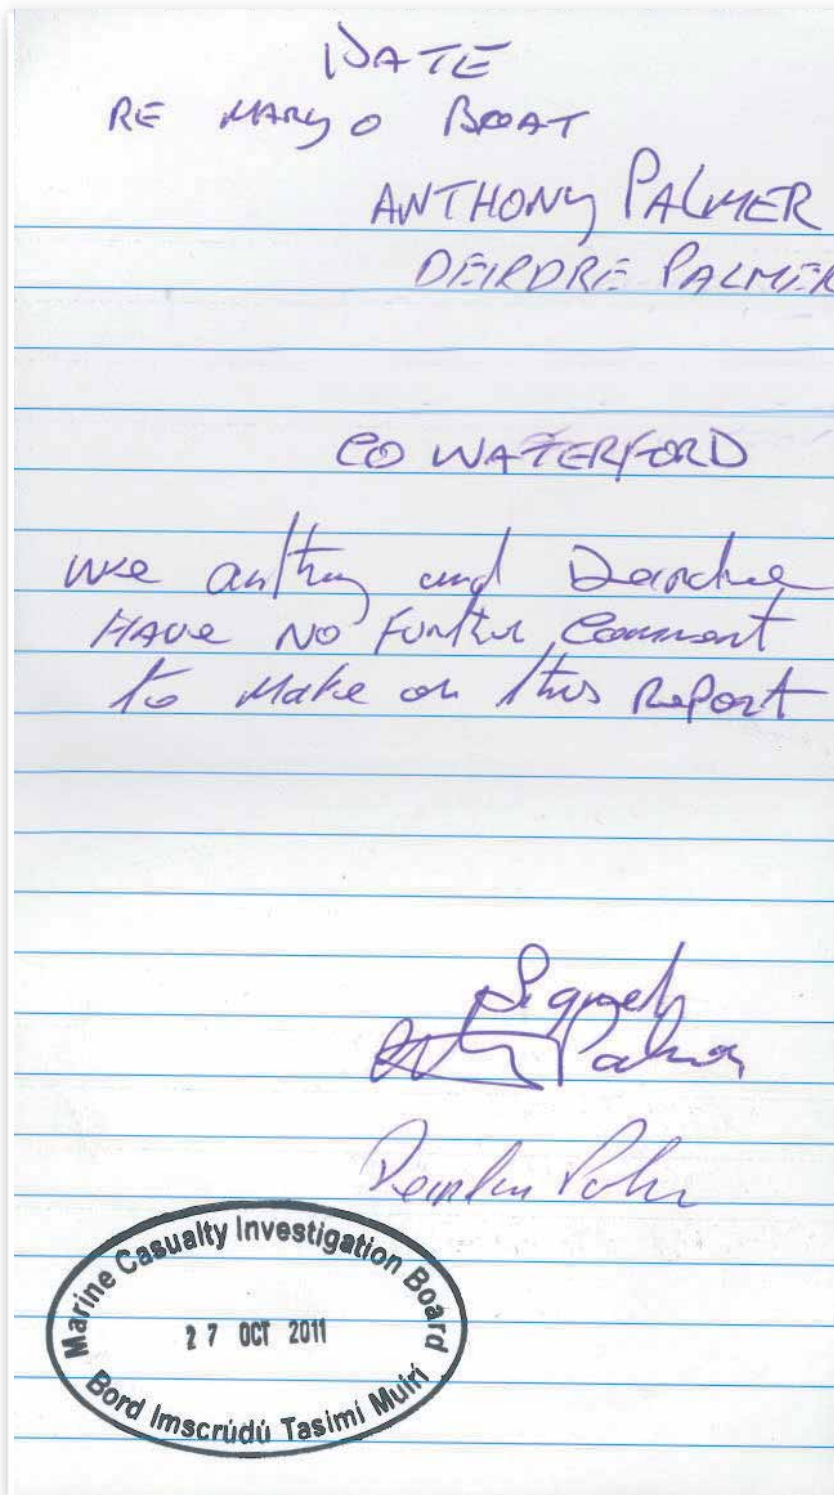 DATE
RE MARY O BOAT
ANTHONY PALMER
DEIRDRE PALMER
CO WATERFORD
we anthony and Deirdre
HAVE NO Further Comment
to Make on this Report
Signed
Palmer
Marine Casualty Investigation Board
27 OCT 2011
Bord Imscrúdú Tasimí Muirí